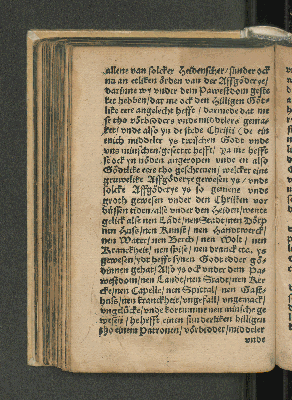 allene van solcker Heidenscher / sunder ock
na an etliken örden van der Affgöderye /
darinne wy vnder dem Pawestdom geste
ket hebben / dat me ock den Hilligen Gött=
like eere angelecht hefft / darmede dat me
se tho vörbidders vnde middelers gemas
ket / vnde also yn de stede Christi (de ein
enich middeler ys twischen Godt vnde
vns minschen / gesettet hefft / ya me hefft
se ock yn nöden angeropen vnde en also
Gödtlike eere tho geschreuen / welcker eine
gruwelike Affgöderye gewesen ys / vnde
solcke Affgöderye ys so gemene vnde
groth gewesen vnder den Christen vor
hüssen tiden / alse vnder den Heiden / wente
gelick alse nen Landt / nen Stadt nen Dörp
nen Huse / nen Kunst / nen Handtwerck /
nen Water / nen Berch / nen Wolt / nen
Kranckheit / nen spise / nen dranck etc. ys
gewesen / ydt hefft synen Godt edder gö=
dinnen gehat / Also ys ock vnder dem Pa=
westdom / nen Landt / nen Stadt / nen Ker
cke / nen Capelle / nen Spittal / nen Gast=
huse / nen Franckheit / vngefall / vngemack /
vngelücke / vnde kortumme nen minsche ge
wesen / he hefft einen sunderliken hilligen
tho einem Patronen / vörbidder / middeler
vnde